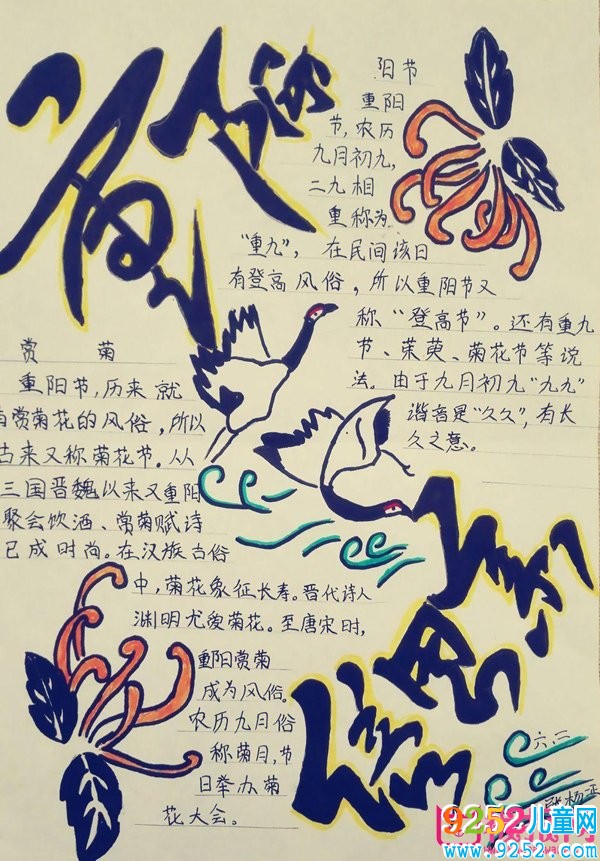 重阳
阳节
重阳
节,农历
九月初九,
二九相
重称为
“重九”, 在民间该日
有登高风俗,所以重阳节又
称“登高节”。还有重九
节、茱萸、菊花节等说
法。由于九月初九“九九”
谐音是“久久”,有长
久之意。
赏 菊
重阳节,历来就
有赏菊花的风俗,所以
古来又称菊花节。从
三国晋魏以来又重阳
聚会饮酒、赏菊赋诗
已成时尚。在汉族古俗
中,菊花象征长寿。晋代诗人
渊明尤爱菊花。至唐宋时,
重阳赏菊
成为风俗。
农历九月俗
称菊月,节
日举办菊
花大会。
倍思亲
六.二
杨
9252儿童网
www.9252.com